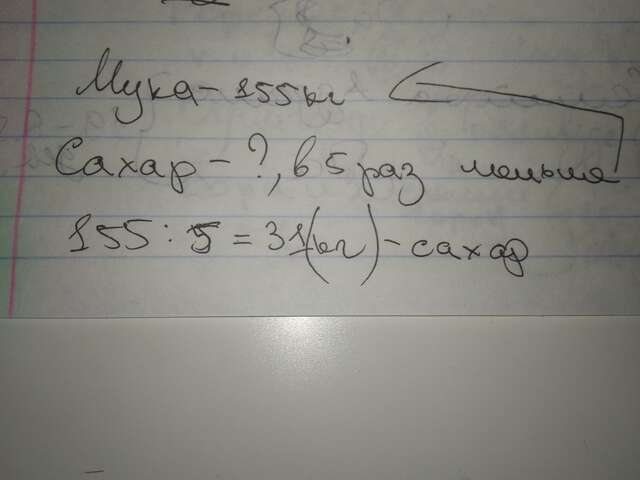 Мука - 155 кг
Сахар - ?, в 5 раз меньше
155 : 5 = 31 (кг) - сахар